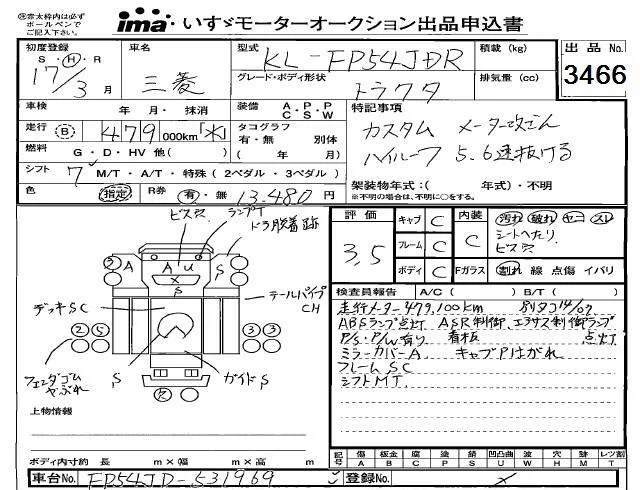 ㊟赤太枠内は必ず
ボールペンで
ご記入下さい。
ima いすゞモーターオークション出品申込書
初度登録
S・Ⓗ・R
17/3月
車名
三菱
型式
KL-FP54JDR
グレード・ボディ形状
トラクタ
積載 (kg)
排気量 (cc)
出品No.
3466
車検 年・月・抹消
走行 Ⓑ 479 000km「メ」
燃料 G・D・HV 他( )
シフト 7 M/T・A/T・特殊(2ペダル・3ペダル)
色 指定 R券 有・無 13,480円
装備 A.P.P C.S.W
タコグラフ 有・無 別体
( 年 月)
特記事項
カスタム メーター改ざん
ハイルーフ 5.6速抜ける
架装物年式:( 年式)・不明
※不明の場合は、不明に○をする。
ビス穴 ランプT
ドラ脱着跡
A A U S
X
S
デッキSC
テールパイプ
CH
② ⑤ ③ ③
フェンダゴム
やぶれ
S
ガイドS
上物情報
ボディ内寸約 長 m×幅 m×高 m
評価
3.5
キャブ C
フレーム C
ボディ C
内装 C
Fガラス C
汚れ 破れ ヤニ スレ
シートへたり
ビス穴
割れ 線 点傷 イバリ
検査員報告 A/C( ) B/T( )
走行メーター479,100km 別タコ14/07
ABSランプ点灯 ASR制御、エアサス制御ランプ
点灯
P/S・P/W有り 看板
ミラーカバーA キャブPはがれ
フレームSC
シフトMT
記号 傷A 板金B 腐C 塗P 錆S 凹凸曲U 波W 穴H 跡M レツ割T
車台No. FP54JD-531969
登録No.